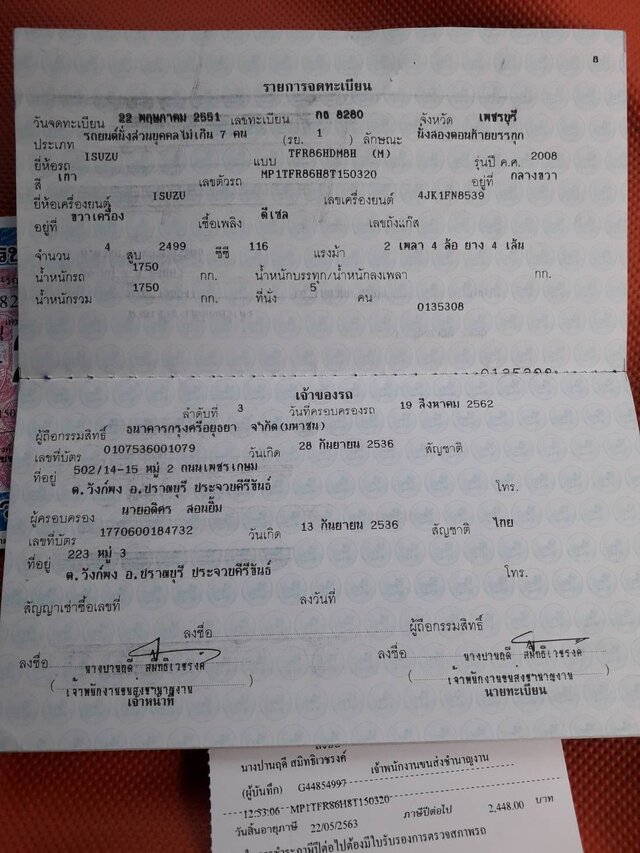 8
รายการจดทะเบียน
วันจดทะเบียน 22 พฤษภาคม 2551 เลขทะเบียน กธ 8280 จังหวัด เพชรบุรี
ประเภท รถยนต์นั่งส่วนบุคคลไม่เกิน 7 คน (รย. 1 ) ลักษณะ นั่งสองตอนท้ายบรรทุก
ยี่ห้อรถ ISUZU แบบ TFR86HDM8H (M) รุ่นปี ค.ศ. 2008
สี เทา เลขตัวรถ MP1TFR86H8T150320 อยู่ที่ กลางขวา
ยี่ห้อเครื่องยนต์ ISUZU เลขเครื่องยนต์ 4JK1FN8539
อยู่ที่ ขวาเครื่อง เชื้อเพลิง ดีเซล เลขถังแก๊ส
จำนวน 4 สูบ 2499 ซีซี 116 แรงม้า 2 เพลา 4 ล้อ ยาง 4 เส้น
น้ำหนักรถ 1750 กก. น้ำหนักบรรทุก/น้ำหนักลงเพลา กก.
น้ำหนักรวม 1750 กก. ที่นั่ง 5 คน
0135308
0135308
เจ้าของรถ
ลำดับที่ 3 วันที่ครอบครองรถ 19 สิงหาคม 2562
ผู้ถือกรรมสิทธิ์ ธนาคารกรุงศรีอยุธยา จำกัด(มหาชน)
เลขที่บัตร 0107536001079 วันเกิด 28 กันยายน 2536 สัญชาติ
ที่อยู่ 502/14-15 หมู่ 2 ถนนเพชรเกษม
ต.วังก์พง อ.ปราณบุรี ประจวบคีรีขันธ์ โทร.
ผู้ครอบครอง นายอดิศร สอนยิ้ม
เลขที่บัตร 1770600184732 วันเกิด 13 กันยายน 2536 สัญชาติ ไทย
ที่อยู่ 223 หมู่ 3
ต.วังก์พง อ.ปราณบุรี ประจวบคีรีขันธ์ โทร.
สัญญาเช่าซื้อเลขที่ ลงวันที่
ลงชื่อ ผู้ถือกรรมสิทธิ์
ลงชื่อ นางปานฤดี สมิทธิเวชรงค์ ลงชื่อ นางปานฤดี สมิทธิเวชรงค์
(เจ้าพนักงานขนส่งชำนาญงาน) (เจ้าพนักงานขนส่งชำนาญงาน)
เจ้าหน้าที่ นายทะเบียน
นางปานฤดี สมิทธิเวชรงค์ เจ้าพนักงานขนส่งชำนาญงาน
(ผู้บันทึก) G44854997
12:53:06 MP1TFR86H8T150320
วันสิ้นอายุภาษี 22/05/2563 ภาษีปีต่อไป 2,448.00 บาท
ในการชำระภาษีปีต่อไปต้องมีใบรับรองการตรวจสภาพรถ